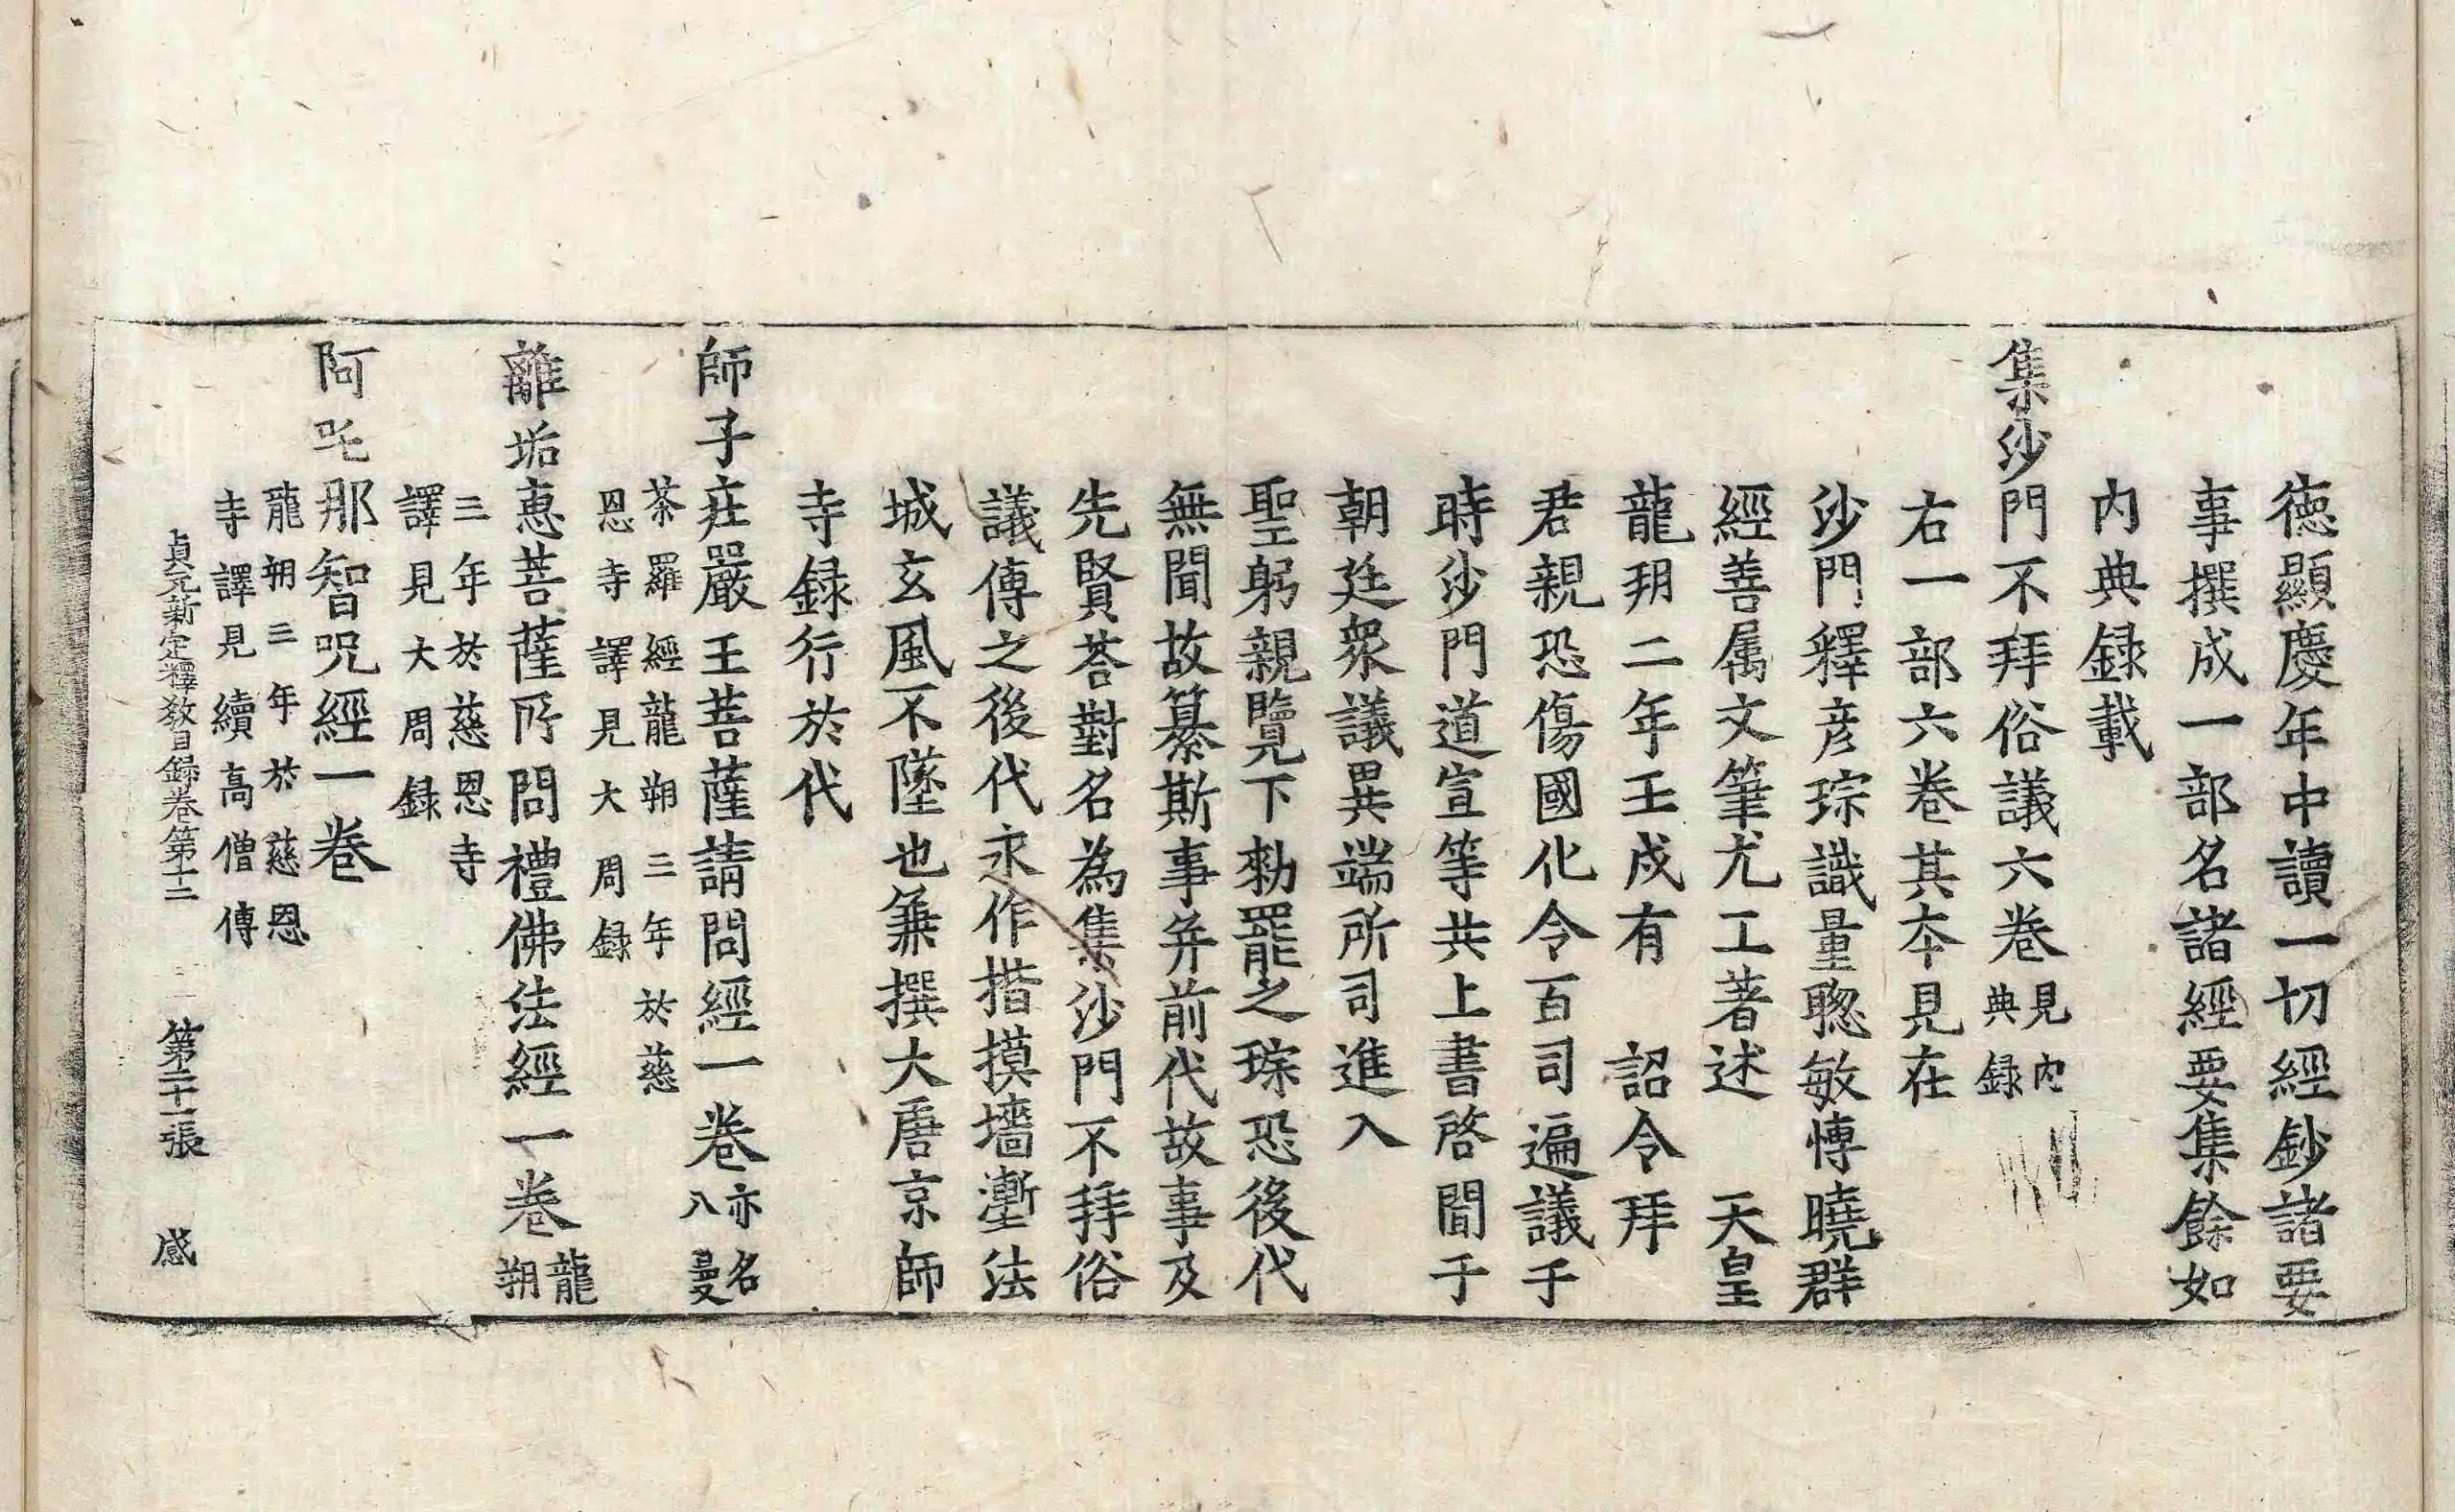 德顯慶年中讀一切經鈔諸要
事撰成一部名諸經要集餘如
内典録載
集沙門不拜俗議六卷見内典録
右一部六卷其本見在
沙門釋彦琮識量聦敏愽曉群
經善属文筆尤工著述　天皇
龍朔二年壬戌有　詔令拜
君親恐傷國化令百司遍議于
時沙門道宣等共上書啓聞于
朝廷衆議異端所司進入
聖躬親覽下勑罷之琮恐後代
無聞故纂斯事并前代故事及
先賢荅對名為集沙門不拜俗
議傳之後代永作揩摸墻壍法
城玄風不墜也兼撰大唐京師
寺録行於代
師子莊嚴王菩薩請問經一卷亦名八曼
茶羅經龍朔三年於慈
恩寺譯見大周録
離垢恵菩薩所問禮佛法經一卷龍朔
三年於慈恩寺
譯見大周録
阿吒那智呪經一卷
龍朔三年於慈恩
寺譯見續高僧傳
貞元新定釋教目録卷第十二　第二十一張　感